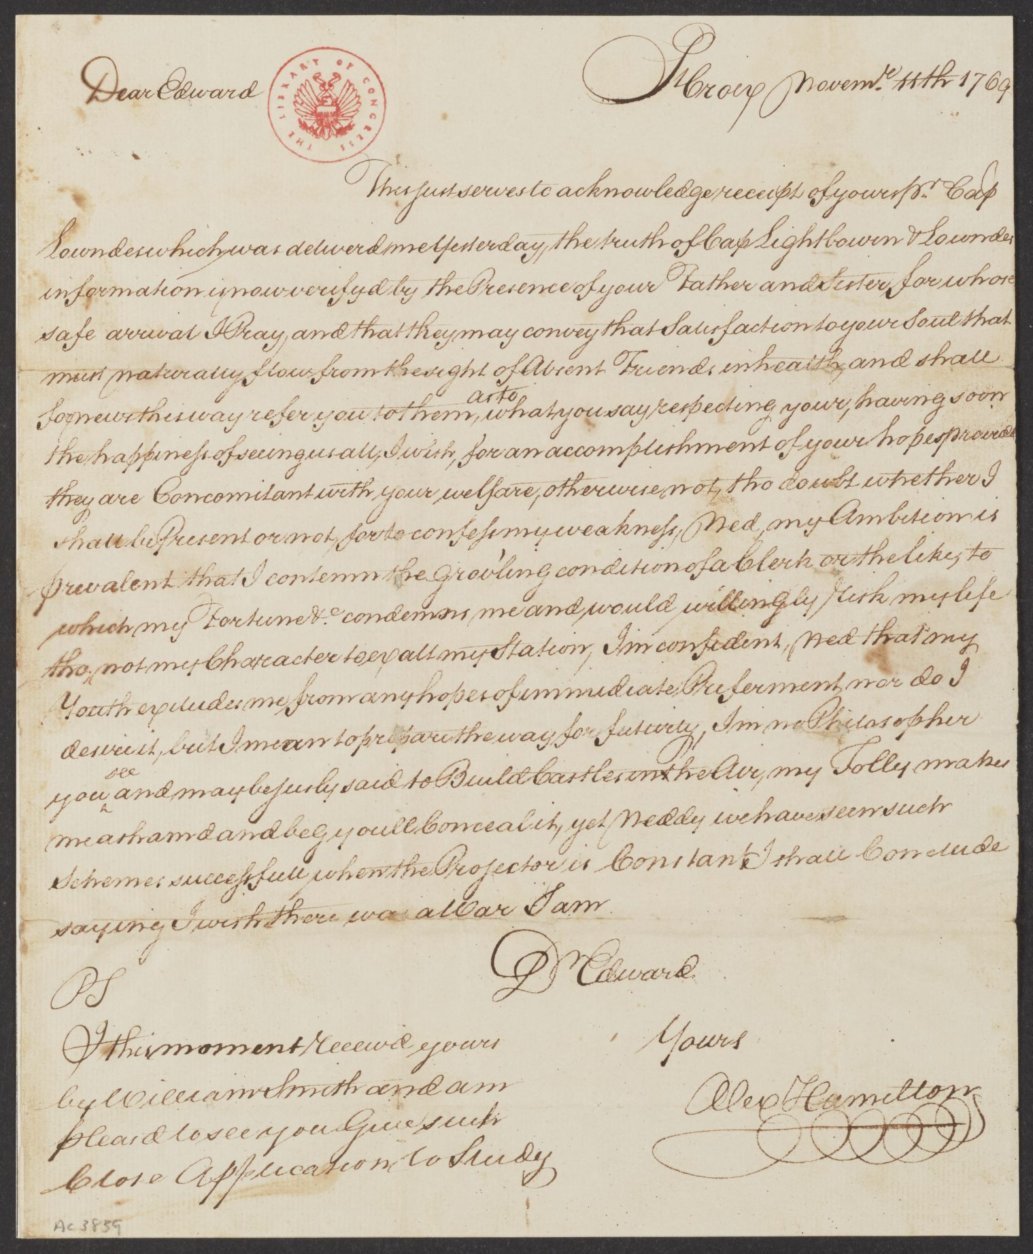 Dear Edward
THE LIBRARY OF CONGRESS
St Croix Novemr. 11th 1769
This just serves to acknowledge receipt of yours pr. Cap
Lowndes which was deliverd me Yesterday, the truth of Cap Lightbowen & Lowndes
information is now verifyd by the Presence of your Father and Sister for whose
safe arrival I Pray, and that they may convey that Satisfaction to your Soul that
must naturally flow from the sight of Absent Friends in health, and shall
for news this way refer you to them,
as to
what you say respecting your, having soon
the happiness of seeing us all, I wish, for an accomplishment of your hopes provided
they are Concomitant with your welfare, otherwise not, tho doubt whether I
shall be Present or not, for to confess my weakness, Ned, my Ambition is
prevalent that I contemn the grov'ling condition of a Clerk or the like, to
which my Fortune &c. condemns me and would willingly risk my life
tho' not my Character to exalt my Station, Im confident, Ned that my
Youth excludes me from any hopes of immediate Preferment nor do I
desire it, but I mean to prepare the way for futurity, Im no Philosopher
you
see
and may be jusly said to Build Castles in the Air, my Folly makes
me ashamd and beg youll Conceal it, yet Neddy we have seen such
Schemes successfull when the Projector is Constant I shall Conclude
saying I wish there was a War I am
Dr Edward
Yours
Alex Hamilton
PS
I this moment receivd yours
by William Smith and am
pleasd to see you Give such
Close Application to Study
Ac 3859